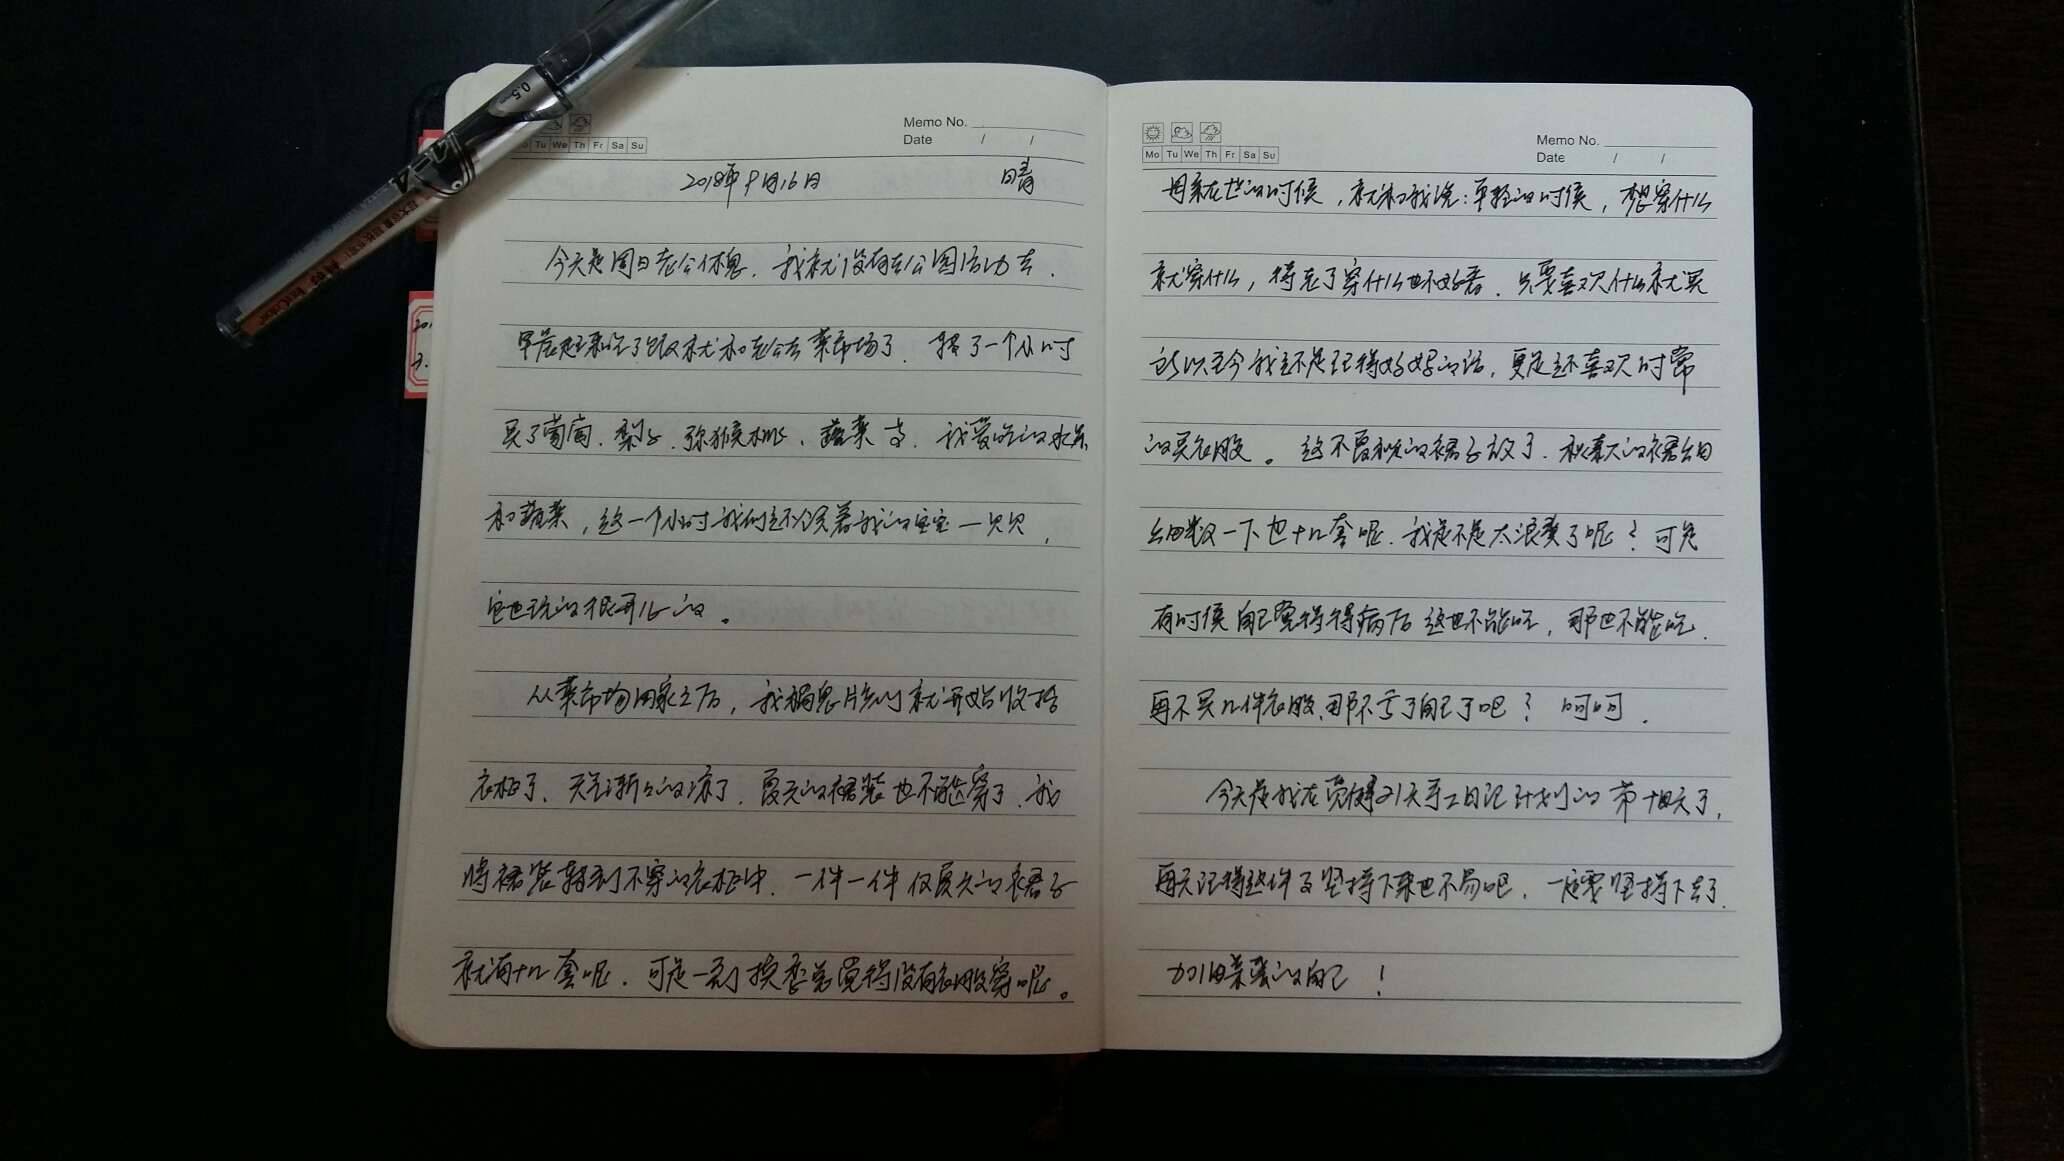 0.5
Memo No.
Date / /
Tu We Th Fr Sa Su
2018年9月16日 晴
今天是周日老公休息，我就没有去公园活动去，
早晨起来吃了饭就和老公去菜市场了，转了一个小时
买了葡萄、梨子、弥猴桃、蔬菜等，我爱吃的水果
和蔬菜，这一个小时我们还领着我的宝宝一贝贝，
它也玩的很开心的。
从菜市场回家之后，我稍息片刻就开始收拾
衣柜了，天气渐渐的凉了，夏天的裙装也不能穿了，我
将裙装转到不穿的衣柜中，一件一件仅夏天的裙子
就有十几套呢，可是一到换季总觉得没有衣服穿呢。
Memo No.
Date / /
Mo Tu We Th Fr Sa Su
母亲在世的时候，就和我说：年轻的时候，想穿什么
就穿什么，待老了穿什么也不好看，只要喜欢什么就买
所以至今我还是记得妈妈的话，更是还喜欢时常
的买衣服。这不夏天的裙子放了，秋天的裙细
细数一下也十几套呢，我是不是太浪费了呢？可是
有时候自己觉得得病后这也不能吃，那也不能吃，
再不买几件衣服，那不亏了自己了吧？呵呵，
今天是我在 21天手工日记计划的第十四天了，
每天记得这件事坚持下来也不易吧，一定要坚持下去了，
加油亲爱的自己！